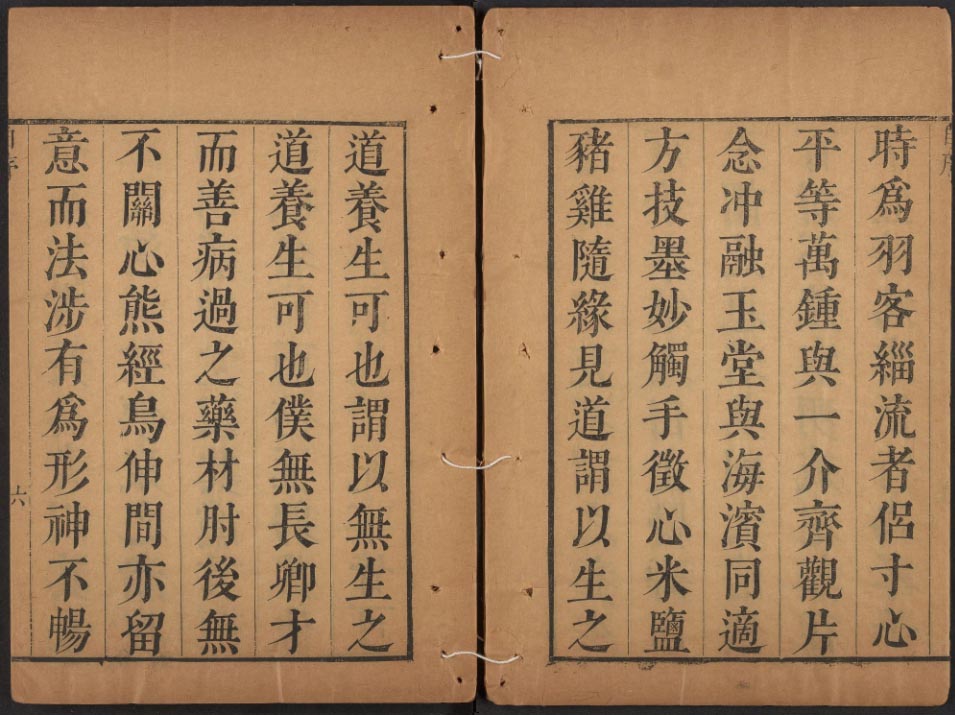 時爲羽客緇流者侶寸心
平等萬鍾與一介齊觀片
念冲融玉堂與海濱同適
方技墨妙觸手徵心米鹽
豬雞隨緣見道謂以生之
道養生可也謂以無生之
道養生可也僕無長卿才
而善病過之藥材肘後無
不關心熊經鳥伸間亦留
意而法涉有爲形神不暢
六